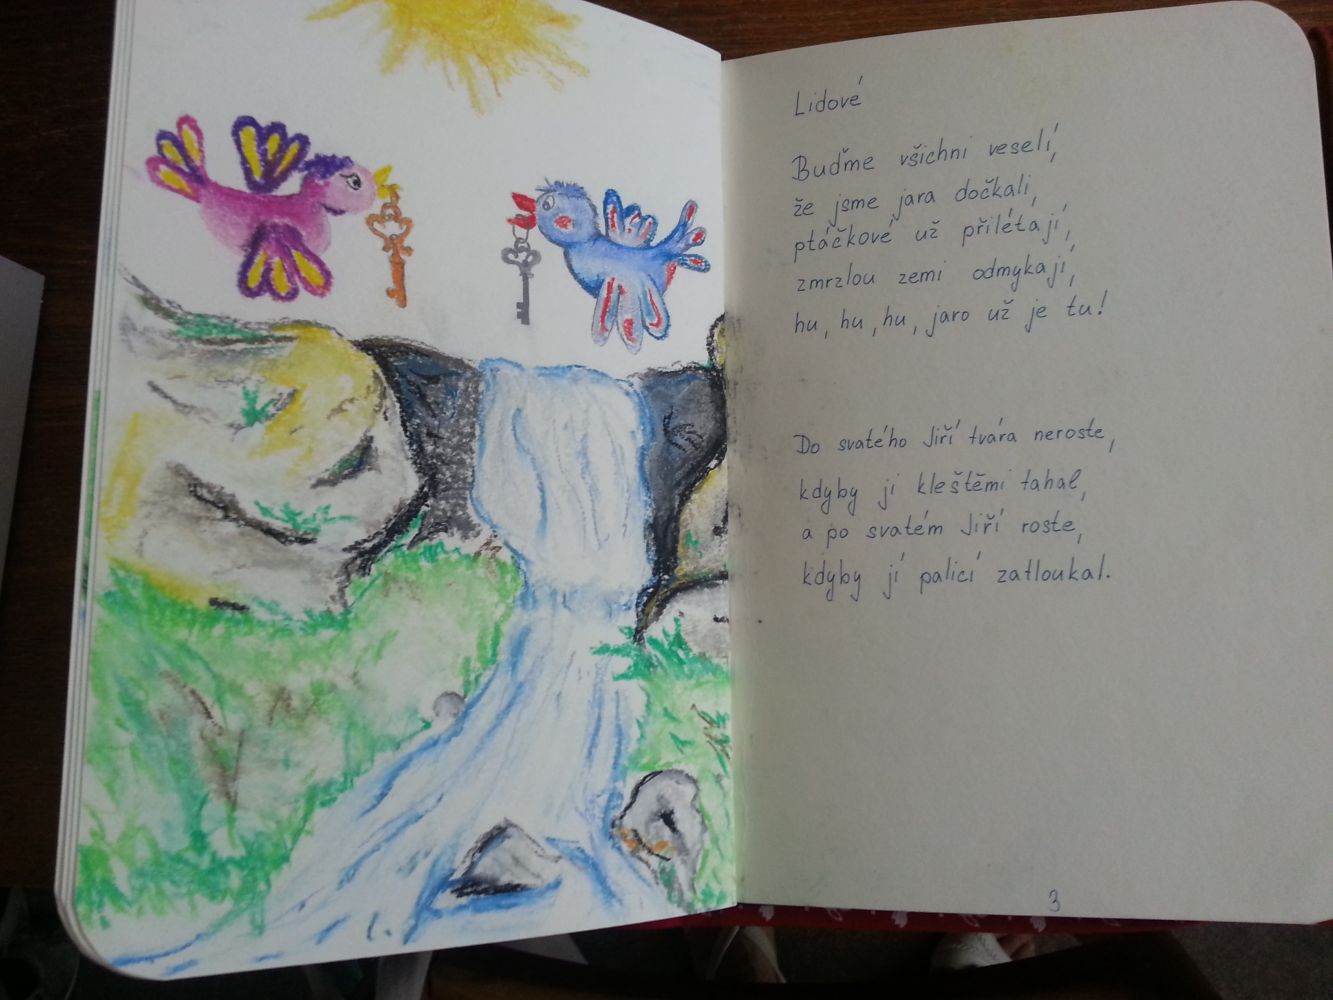 Lidové
Buďme všichni veselí,
že jsme jara dočkali,
ptáčkové už přilétají,
zmrzlou zemi odmykají,
hu, hu, hu, jaro už je tu!
Do svatého Jiří tvára neroste,
kdyby ji kleštěmi tahal,
a po svatém Jiří roste,
kdyby jí palicí zatloukal.
3